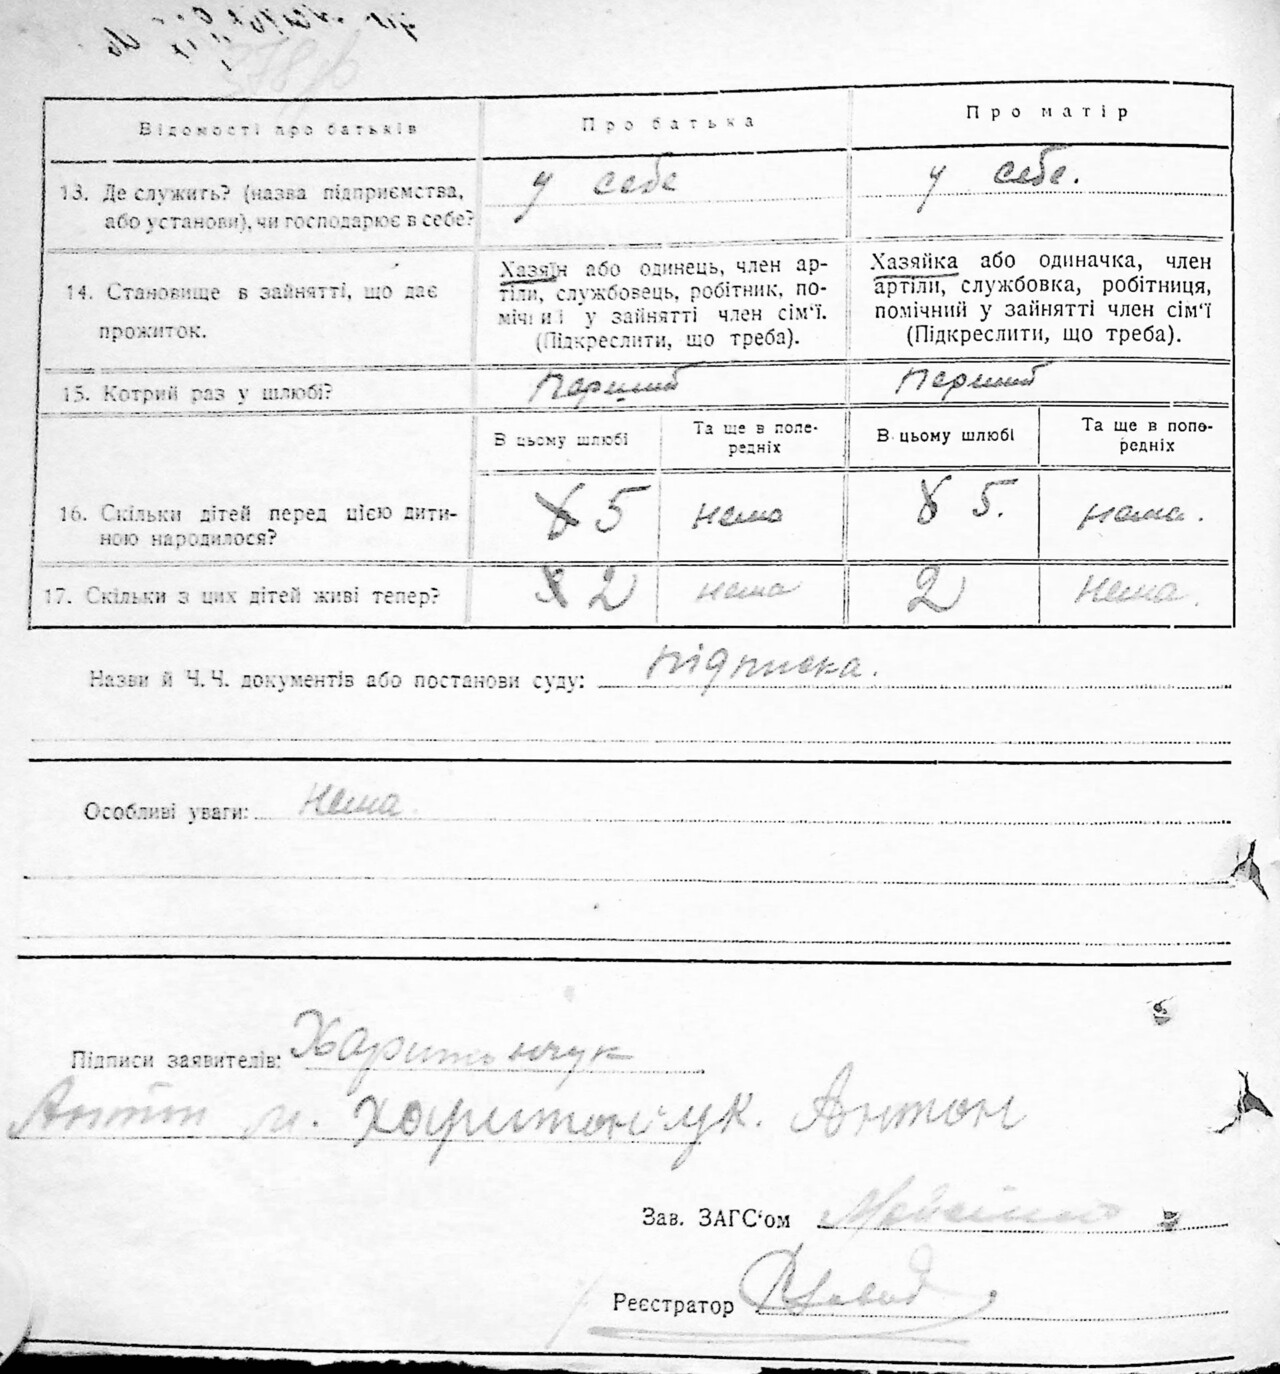 378
Відомості про батьків
Про батька
Про матір
13. Де служить? (назва підприємства,
або установи), чи господарює в себе?
у себе
у себе.
14. Становище в зайнятті, що дає
прожиток.
Хазяїн або одинець, член ар-
тіли, службовець, робітник, по-
мічниі у зайнятті член сім'ї.
(Підкреслити, що треба).
Хазяйка або одиначка, член
артіли, службовка, робітниця,
помічний у зайнятті член сім'ї
(Підкреслити, що треба).
15. Котрий раз у шлюбі?
перший
перший
В цьому шлюбі
Та ще в попе-
редніх
В цьому шлюбі
Та ще в попе-
редніх
16. Скільки дітей перед цією дити-
ною народилося?
5
нема
5.
нема.
17. Скільки з цих дітей живі тепер?
2
нема
2
нема.
Назви й Ч.Ч. документів або постанови суду: підписка.
Особливі уваги: нема
Підписи заявителів: Харитончук
Антон м. Харитончук. Антон
Зав. ЗАГС'ом
Реєстратор